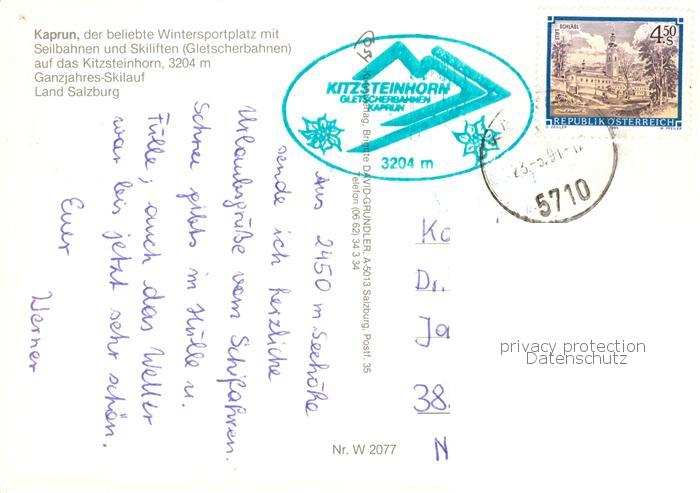 Kaprun, der beliebte Wintersportplatz mit
Seilbahnen und Skiliften (Gletscherbahnen)
auf das Kitzsteinhorn, 3204 m
Ganzjahres-Skilauf
Land Salzburg
KITZSTEINHORN
GLETSCHERBAHNEN
KAPRUN
3204 m
STIFT SCHLÄGL
4.50 S
REPUBLIK ÖSTERREICH
5710
Aus 2450 m Seehöhe
sende ich herzliche
Urlaubsgrüße vom Schifahren.
Schnee gibts in Hülle u.
Fülle, auch das Wetter
war bis jetzt sehr schön.
Euer
Werner
Brigitte DAVID-GRUNDLER, A-5013 Salzburg, Postf. 35
Telefon (06 62) 34 3 34
Ko
Dr.
Ja
38
N
privacy protection
Datenschutz
Nr. W 2077